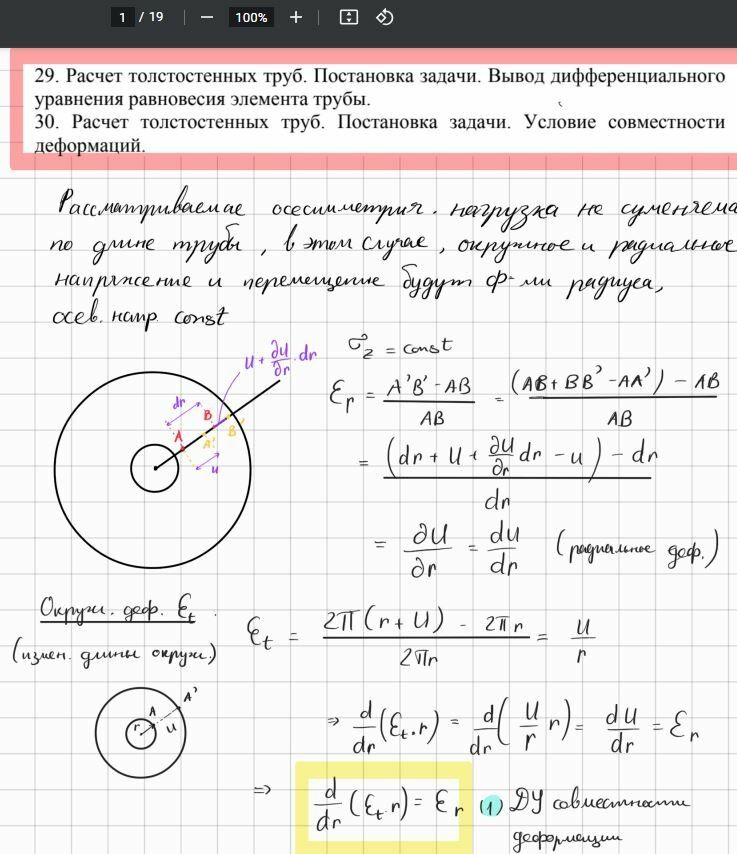 1 / 19 − 100% +
29. Расчет толстостенных труб. Постановка задачи. Вывод дифференциального
уравнения равновесия элемента трубы.
30. Расчет толстостенных труб. Постановка задачи. Условие совместности
деформаций.
Рассматриваемае осесимметрия. нагрузка не суменяема
по длине трубы, в этом случае, окружное и радиальное
напряжение и перемещение будут ф-ми радиуса,
осев. напр. const
σ_z = const
U + ∂U/∂r · dr
dr
B
B'
A
A'
u
ε_r = (A'B' - AB)/AB = ((AB + BB' - AA') - AB)/AB
= ((dr + U + ∂U/∂r dr - u) - dr)/dr
= ∂U/∂r = dU/dr (радиальное деф.)
Окружн. деф. ε_t .
(измен. длины окружн.)
ε_t = (2π(r + U) - 2πr)/2πr = u/r
A'
A
r
u
⇒ d/dr (ε_t · r) = d/dr (U/r r) = dU/dr = ε_r
⇒ d/dr (ε_t r) = ε_r (1) ДУ совместности
деформации